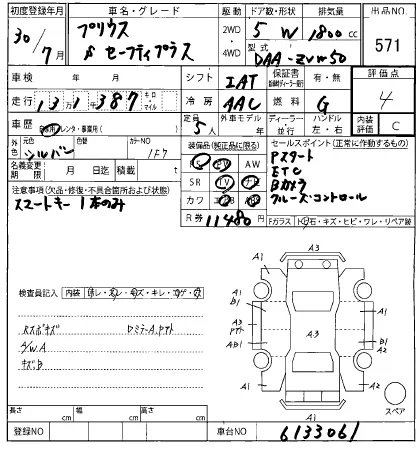 初度登録年月 車名・グレード 駆動 ドア数・形状 排気量 出品NO.
30/7月 プリウス S セーフティプラス 2WD・4WD 5 W 1800cc 571
型式 DAA-ZVW50
車検 年 月 シフト IAT 保証書 有・無 評価点 4
走行 13万1387 キロ・マイル 冷房 AAC 燃料 G
車歴 自家用・レンタ・事業用( ) 定員 5人 外車モデル 年 ディーラー・並行 ハンドル 左・右 内装評価 C
外色 元色 シルバー 色替 カラーNO 1F7
装備品(純正品に限る) セールスポイント(正常に動作するもの)
SR TV ナビ AW
カワ エアB
Pスタート
ETC
Bカメラ
クルーズ・コントロール
名義変更期限 月 日迄 積載 t
R券 11480円
注意事項(欠品・修復・不具合箇所および状態)
スマートキー 1本のみ
Fガラス 石・キズ・ヒビ・ワレ・リペア跡
検査員記入 内装
A/W.A
キズ.B
A3
A1
A1
B1
A3
AB1
A1
A3
A1
B1
A2
A1
スペア
長さ cm 幅 cm 高さ cm
登録NO 車台NO 6133061